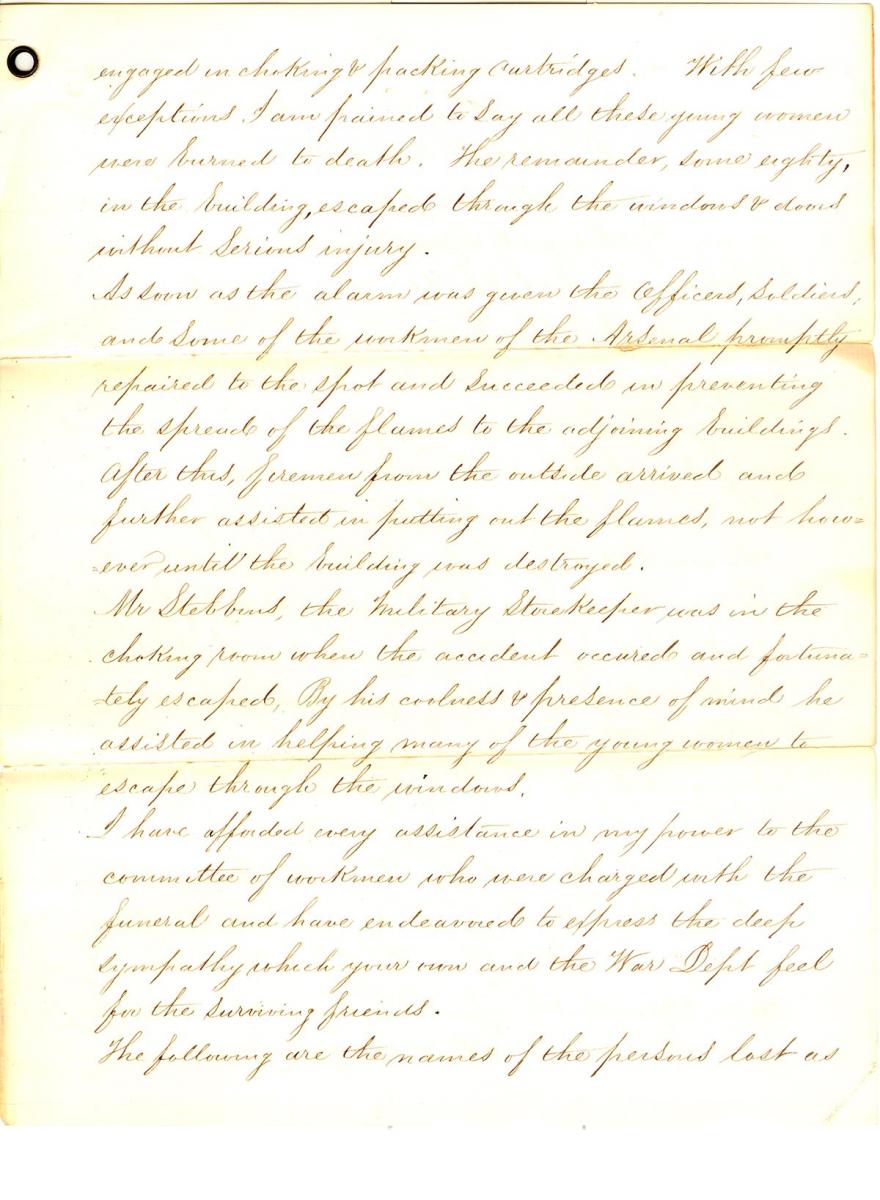 engaged in choking & packing cartridges. With few
exceptions I am pained to say all these young women
were burned to death. The remainder, some eighty,
in the building, escaped through the windows & doors
without serious injury.
As soon as the alarm was given the Officers, Soldiers,
and some of the workmen of the Arsenal promptly
repaired to the spot and succeeded in preventing
the spread of the flames to the adjoining buildings.
After this, firemen from the outside arrived and
further assisted in putting out the flames, not how=
=ever until the building was destroyed.
Mr Stebbins, the Military Storekeeper was in the
choking room when the accident occured and fortuna=
=tely escaped, By his coolness & presence of mind he
assisted in helping many of the young women to
escape through the windows.
I have afforded every assistance in my power to the
committee of workmen who were charged with the
funeral and have endeavored to express the deep
sympathy which your own and the War Dept feel
for the surviving friends.
The following are the names of the persons lost as